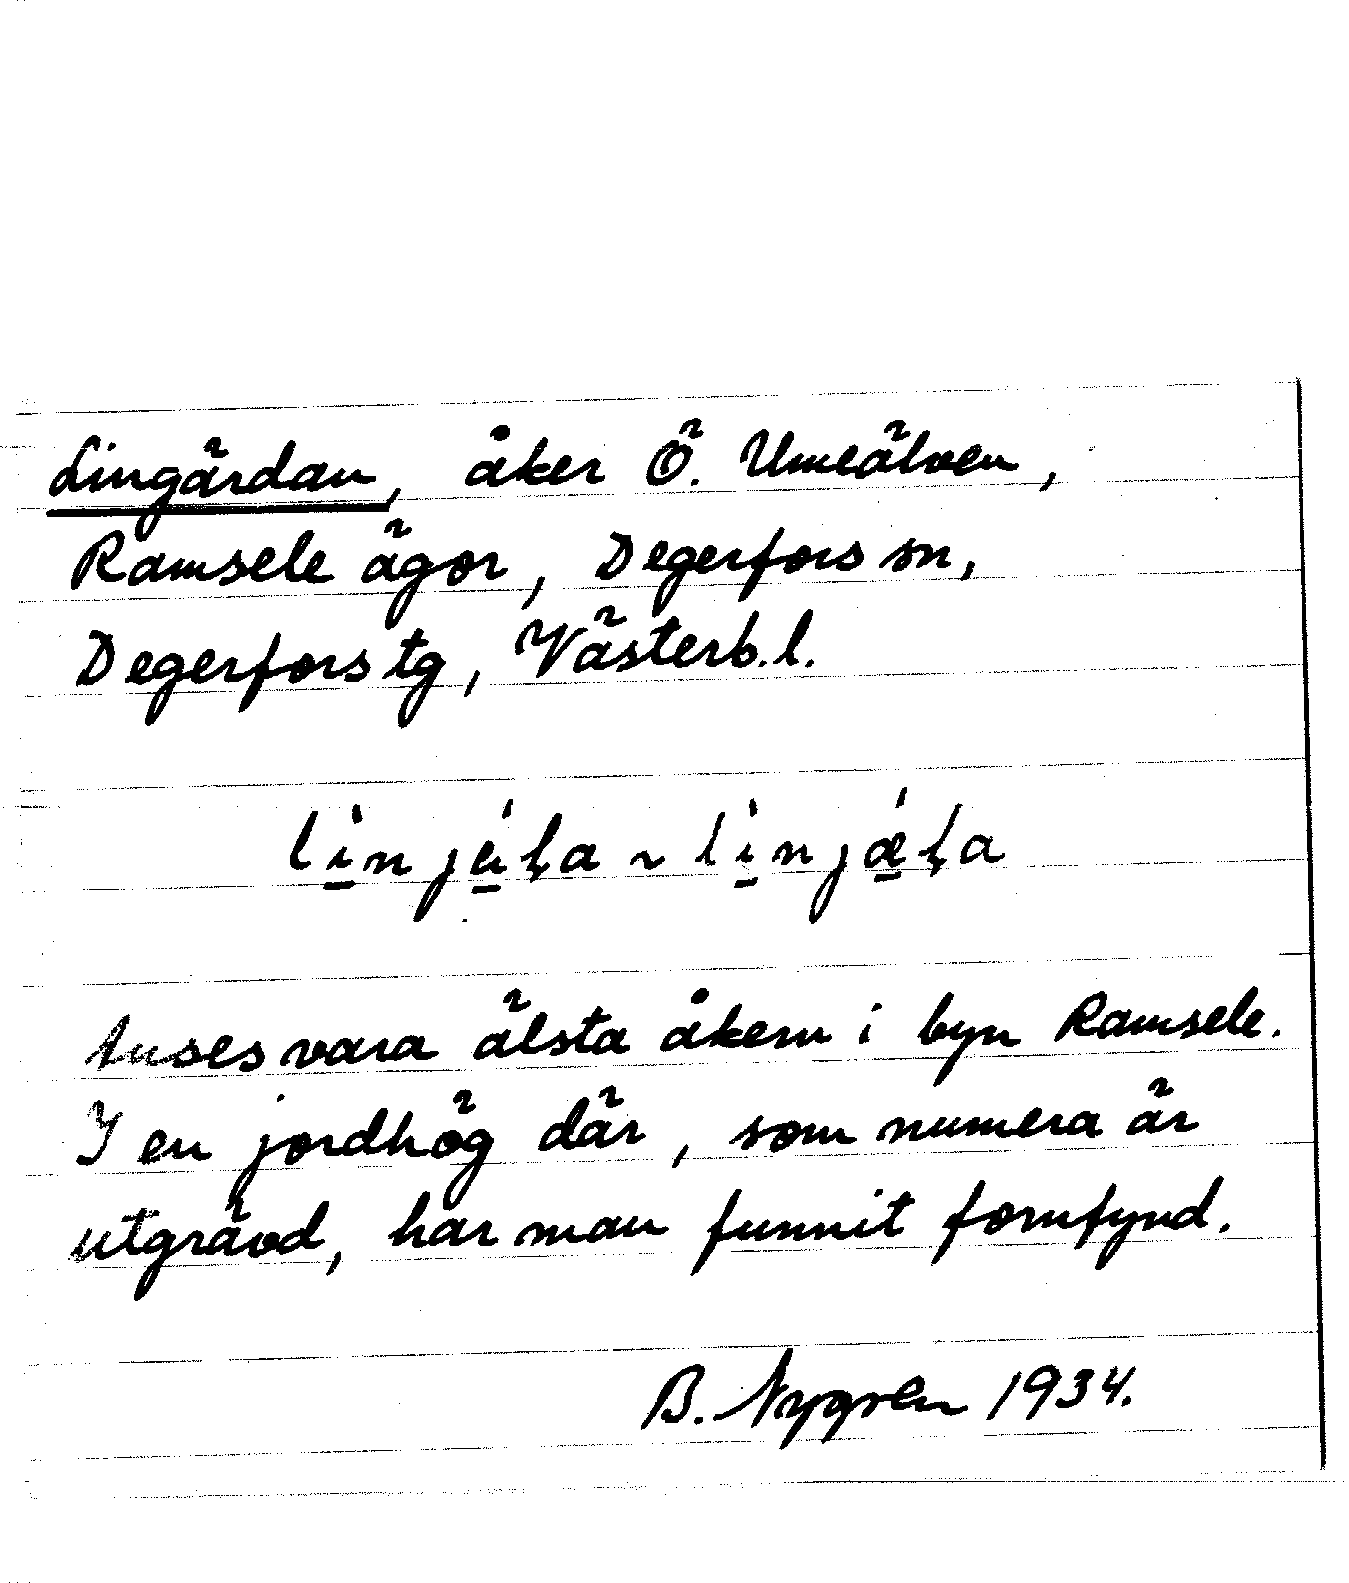 Lingärdan, åker Ö. Umeälven,
Ramsele ägor, Degerfors sn,
Degerfors tg, Västerb.l.
lì̱njá̱ḷa ~ lì̱njǽ̱ḷa
Anses vara älsta åkern i byn Ramsele.
I en jordhög där, som numera är
utgrävd, har man funnit fornfynd.
B. Nygren 1934.